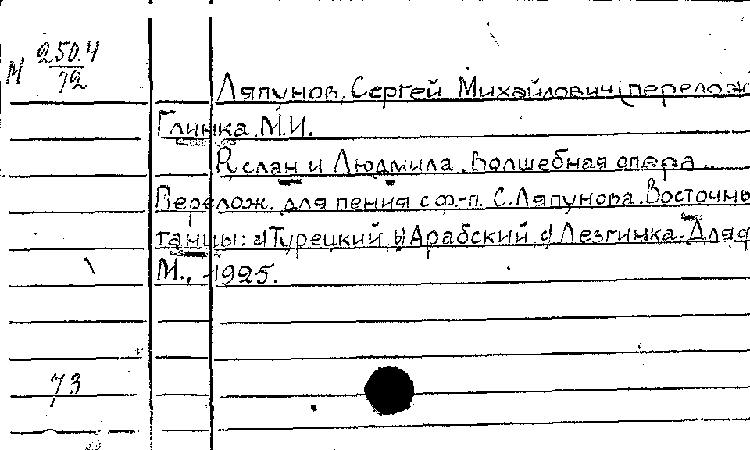 М 250.4
72
Ляпунов, Сергей Михайлович (перелож
Глинка, М.И.
Руслан и Людмила. Волшебная опера.
Перелож. для пения с ф-п. С. Ляпунова. Восточны
танцы: а) Турецкий, в) Арабский, с) Лезгинка. Для ф
М., 1925.
73